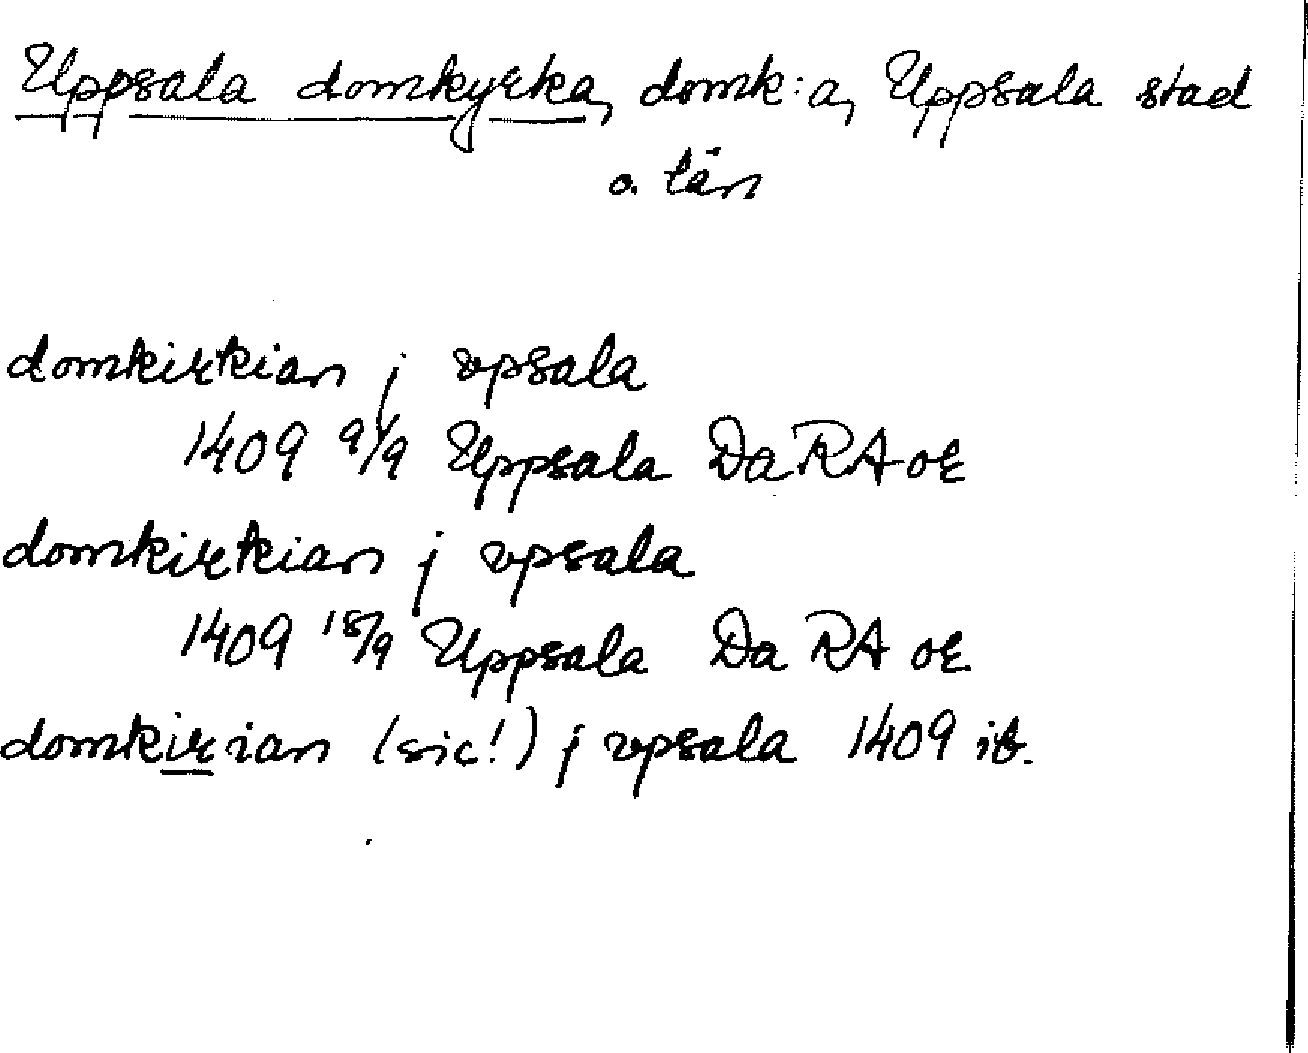 Uppsala domkyrka, domk:a, Uppsala stad
o. län
domkirkian j vpsala
1409 9/9 Uppsala Da RA or
domkirkian j vpsala
1409 18/9 Uppsala Da RA or
domkirian (sic!) j vpsala 1409 ib.